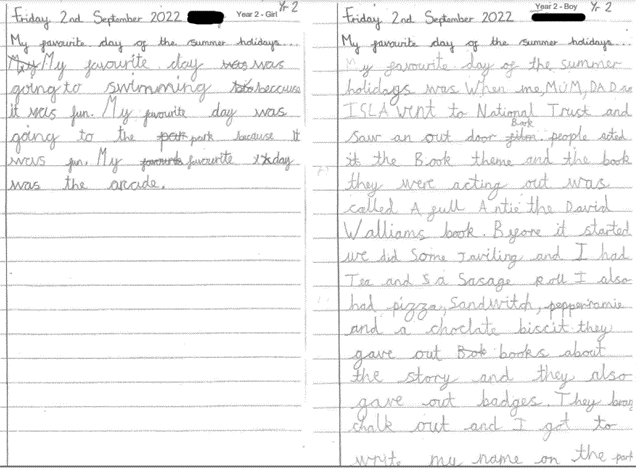 Friday 2nd September 2022 Year 2 - Girl Yr 2
My favourite day of the summer holidays...
My My favourite day was was
going to swimming because
it was fun. My favourite day was
going to the park park because it
was fun. My favourite favourite day
was the arcade.
Friday 2nd September 2022 Year 2 - Boy Yr 2
My favourite day of the summer holidays...
My favourite day of the summer
holidays was When me, MUM, DAD an
ISLA Went to National Trust and
Book
saw an out door film. people acted
it the Book theme and the book
they were acting out was
called A gull A ntie the David
Walliams book. Byfore it started
we did Some Traviling and I had
Tea and S a Sasage roll I also
had pizza, Sandwitch, pepperramie
and a choclate biscit. they
gave out Bok books about
the story and they also
gave out badges. They brang
chalk out and I got to
write my name on the park